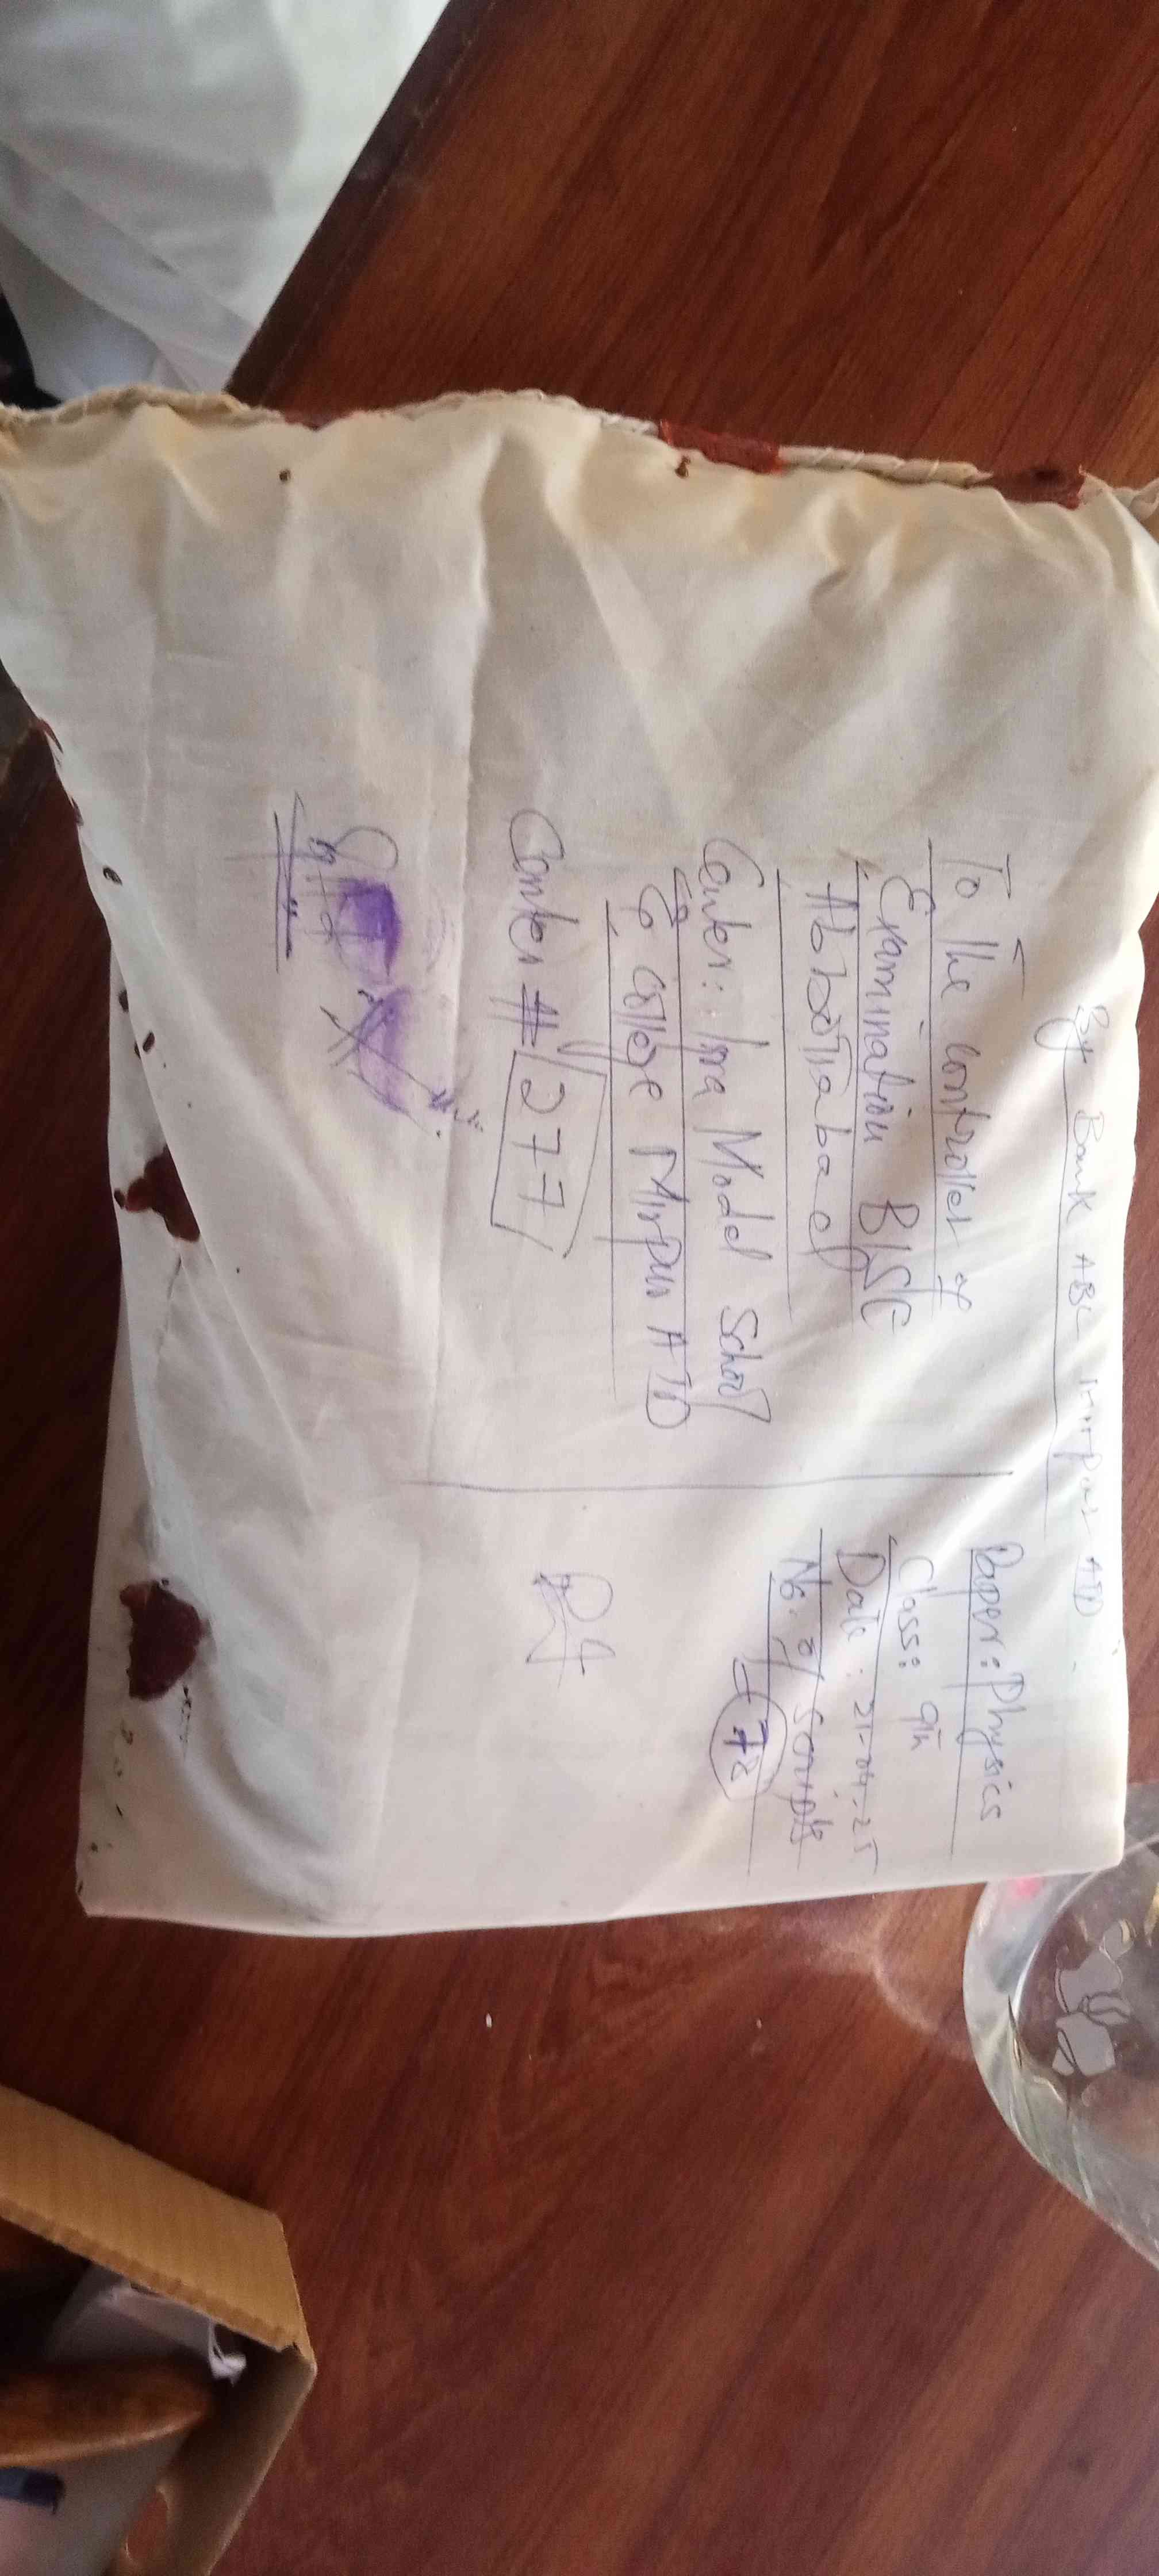 By Bank ABL Mirpur ATD
To The controller of
Examination BISE
Abbottabad
Center: Iqra Model School
& College Mirpur ATD
Center # 277
Paper: Physics
Class: 9th
Date: 21-04-25
No. of Scripts
= 78